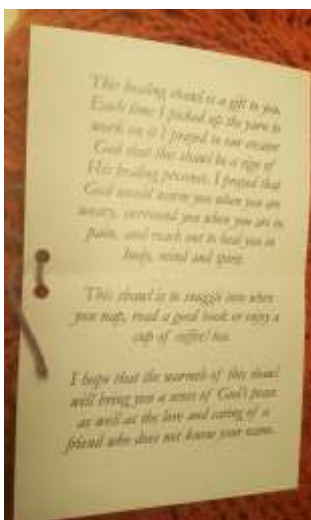 This healing shawl is a gift to you.
Each time I picked up the yarn to
work on it I prayed to our creator
God that this shawl be a sign of
His healing presence. I prayed that
God would warm you when you are
weary, surround you when you are in
pain, and reach out to heal you in
body, mind and spirit.
This shawl is to snuggle into when
you nap, read a good book or enjoy a
cup of coffee/tea.
I hope that the warmth of this shawl
will bring you a sense of God's peace
as well as the love and caring of a
friend who does not know your name.